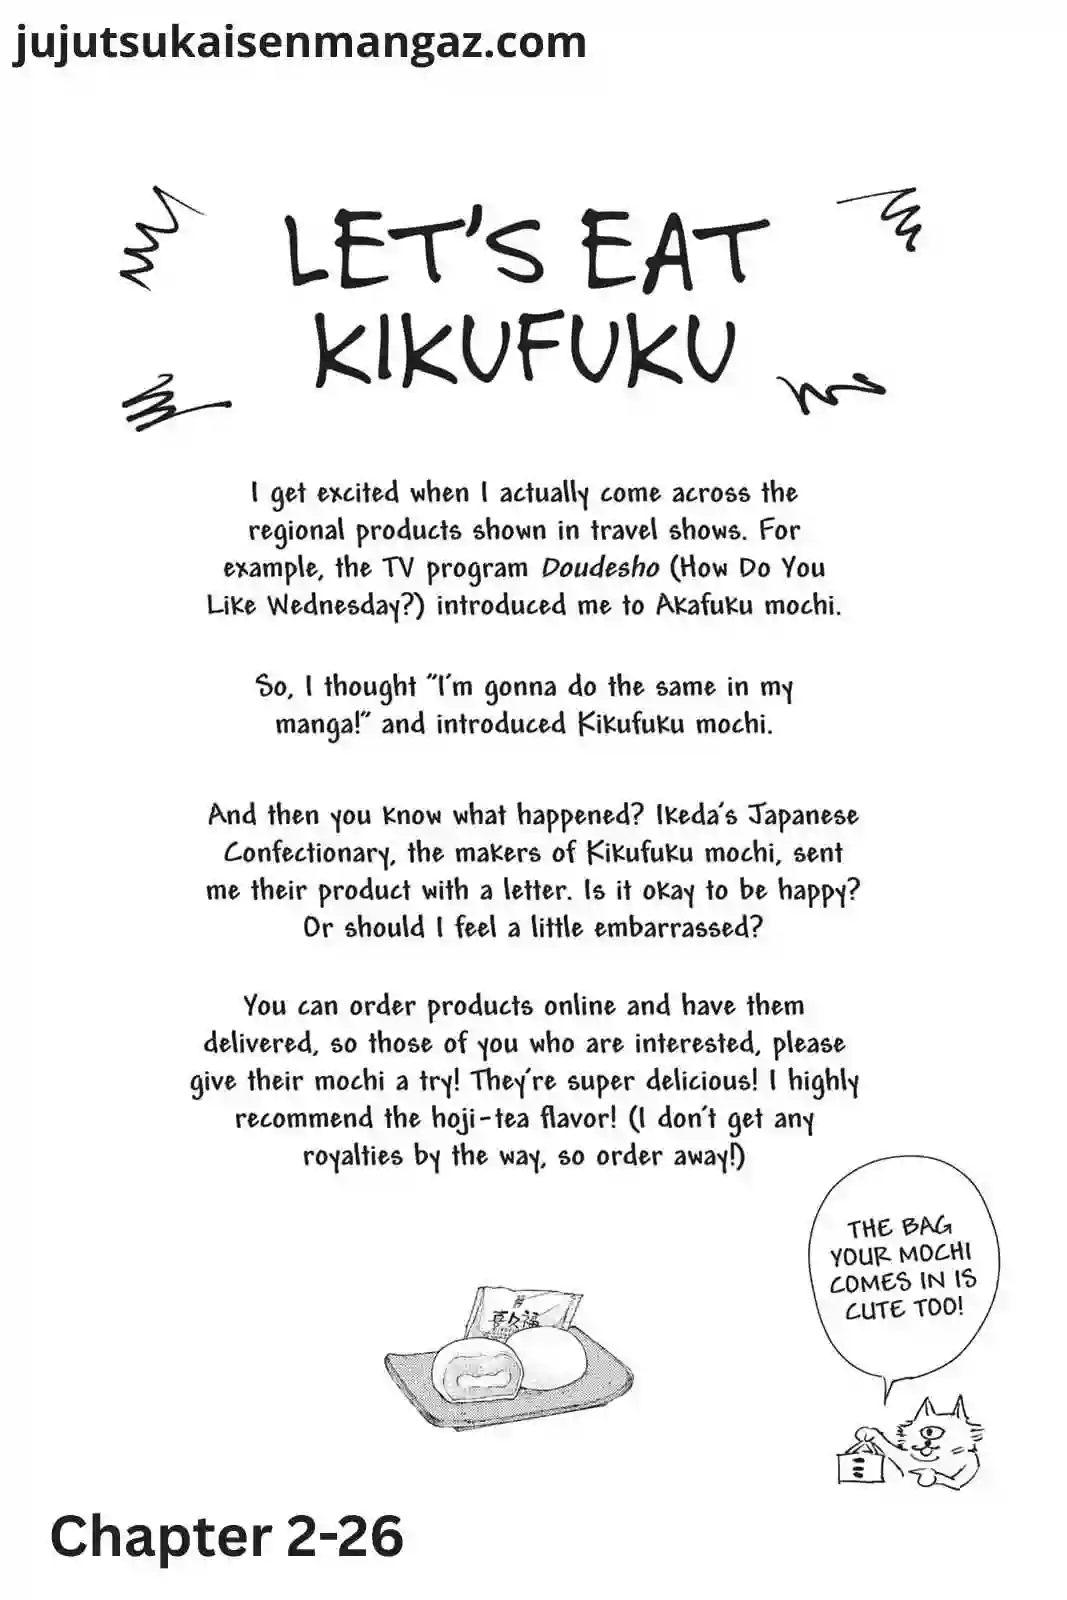 jujutsukaisenmangaz.com
LET'S EAT
KIKUFUKU
I get excited when I actually come across the
regional products shown in travel shows. For
example, the TV program Doudesho (How Do You
Like Wednesday?) introduced me to Akafuku mochi.
So, I thought "I'm gonna do the same in my
manga!" and introduced Kikufuku mochi.
And then you know what happened? Ikeda's Japanese
Confectionary, the makers of Kikufuku mochi, sent
me their product with a letter. Is it okay to be happy?
Or should I feel a little embarrassed?
You can order products online and have them
delivered, so those of you who are interested, please
give their mochi a try! They're super delicious! I highly
recommend the hoji-tea flavor! (I don't get any
royalties by the way, so order away!)
THE BAG
YOUR MOCHI
COMES IN IS
CUTE TOO!
喜久福
Chapter 2-26